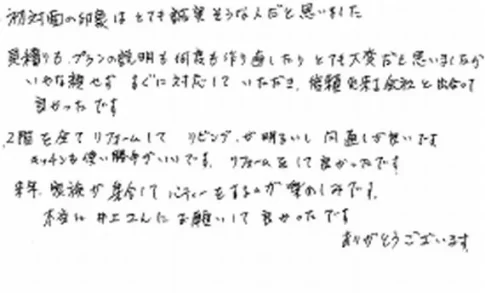 初対面の印象はとても誠実そうな人だと思いました
見積りも、プランの説明も何度も作り直したりとても大変だと思いましたが
いやな顔せず すぐに対応して いただき、信頼出来る会社と出会って
良かったです
2階を全てリフォームして リビングが明るいし 風通しが良いです
キッチンも使い勝手がいいです。リフォームをして良かったです
来年、家族が集合して パーティーをするのが楽しみです。
本当に 井エさんにお願いして良かったです
ありがとうございます。